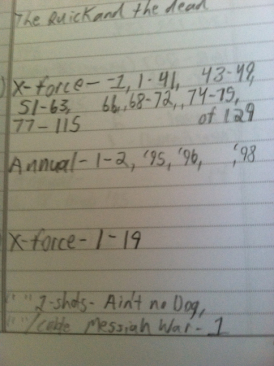 The Quick and the dead
X-force - -1, 1-41, 43-49,
51-63, 66, 68-72, 74-75,
77-115 of 129
Annual - 1-2, '95, '96, '98
X-force - 1-19
" " 2-shots - Ain't no Dog,
" "/cable Messiah War - 1